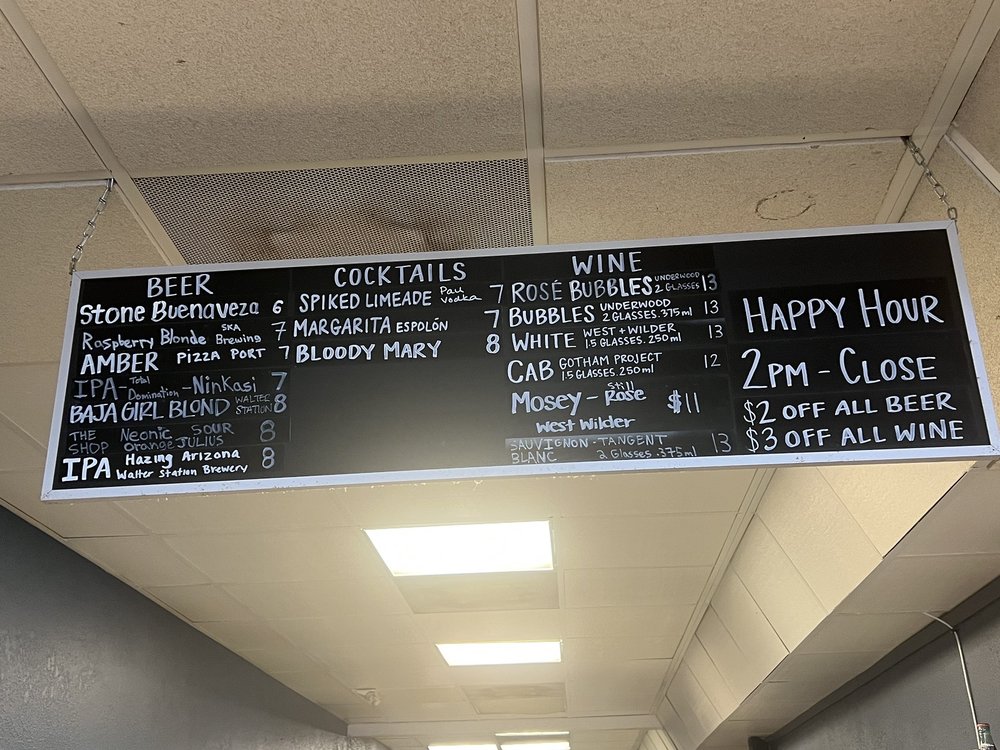 BEER
Stone Buenaveza 6
Raspberry Blonde SKA Brewing 7
AMBER PIZZA PORT 7
IPA - Total Domination - Ninkasi 7
BAJA GIRL BLOND WALTER STATION 8
THE SHOP Neonic Orange SOUR JULIUS 8
IPA Hazing Arizona Walter Station Brewery 8
COCKTAILS
SPIKED LIMEADE Pau Vodka 7
MARGARITA ESPOLÓN 7
BLOODY MARY 8
WINE
ROSÉ BUBBLES UNDERWOOD 2 GLASSES 13
BUBBLES UNDERWOOD 2 GLASSES .375ml 13
WHITE WEST + WILDER 1.5 GLASSES .250ml 13
CAB GOTHAM PROJECT 1.5 GLASSES .250ml 12
Mosey - Still Rose $11
West Wilder
SAUVIGNON - TANGENT 13
BLANC 2 Glasses .375ml
HAPPY HOUR
2PM - CLOSE
$2 OFF ALL BEER
$3 OFF ALL WINE